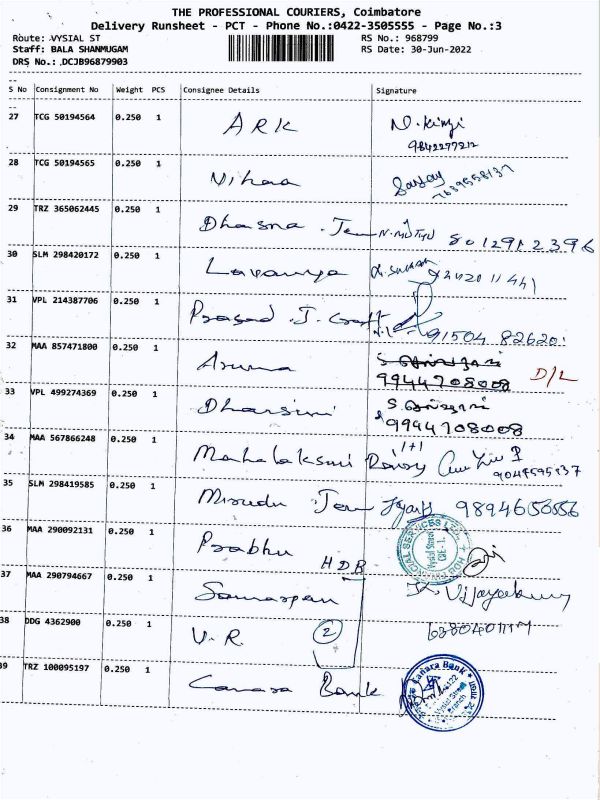 THE PROFESSIONAL COURIERS, Coimbatore
Delivery Runsheet - PCT - Phone No.:0422-3505555 - Page No.:3
Route: VYSIAL ST RS No.: 968799
Staff: BALA SHANMUGAM RS Date: 30-Jun-2022
DRS No.: DCJB96879903
S No Consignment No Weight PCS Consignee Details Signature
27 TCG 50194564 0.250 1 ARK
9842277212
28 TCG 50194565 0.250 1 Nihaa Sanjay
7639558137
29 TRZ 365062445 0.250 1 Dhasna Jew N.Muthu 8012912396
30 SLM 298420172 0.250 1 Lavanya
31 VPL 214387706 0.250 1 Prasad J. Craft 91504 82620
32 MAA 857471800 0.250 1 Aruna
9944708008 D/L
33 VPL 499274369 0.250 1 Dharsini
9944708008
34 MAA 567866248 0.250 1 Mahalaksmi
35 SLM 298419585 0.250 1 Mrudu Jew 9894656556
36 MAA 290092131 0.250 1 Prabhu
HDB
37 MAA 290794667 0.250 1 K. Vijayakumar
38 DDG 4362900 0.250 1 V.R 2
39 TRZ 100095197 0.250 1 Canara Bank
Canara Bank